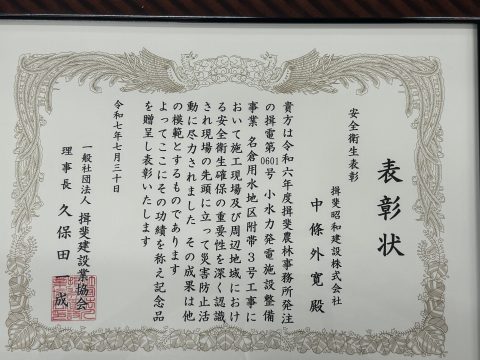 表彰状
安全衛生表彰
揖斐昭和建設株式会社
中條外寛殿
貴方は令和六年度揖斐農林事務所発注
の揖電第0601号 小水力発電施設整備
事業 名倉用水地区附帯３号工事に
おいて施工現場及び周辺地域におけ
る安全衛生確保の重要性を深く認識
され現場の先頭に立って災害防止活
動に尽力されました その成果は他
の模範とするものであります
よってここにその功績を称え記念品
を贈呈し表彰いたします
令和七年七月三十日
一般社団法人 揖斐建設業協会
理事長 久保田一成